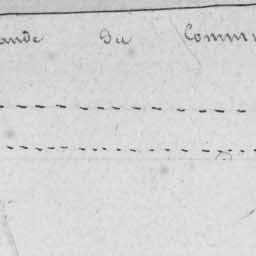 ande du Commu